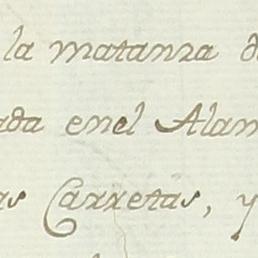 la matanza d
ada enel Alam
as Carretas, y